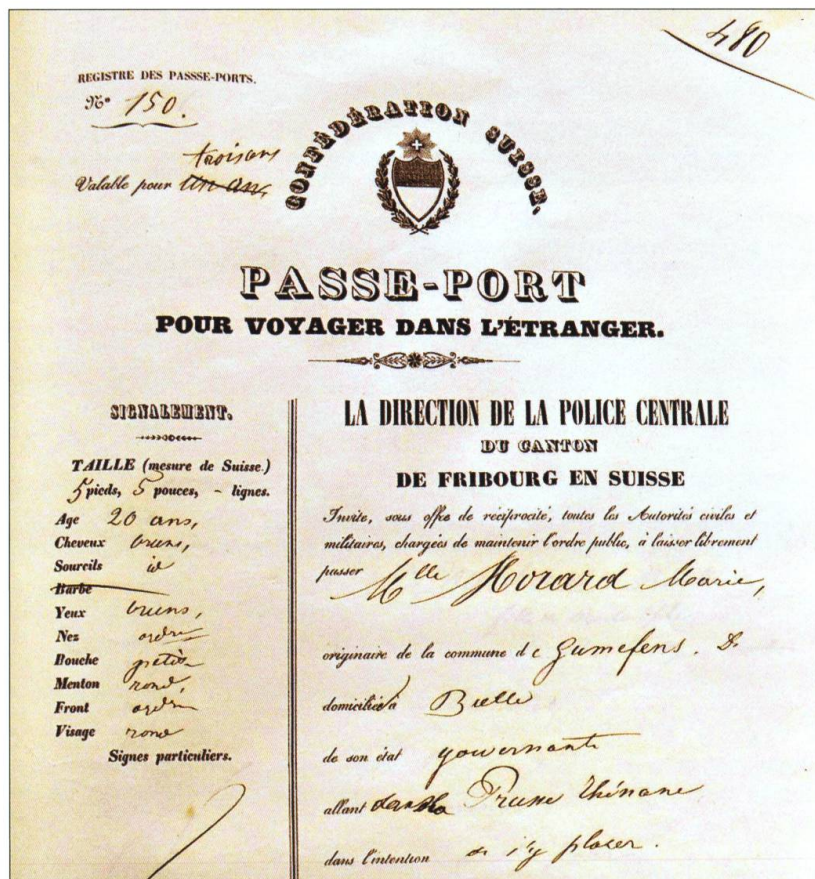 480
REGISTRE DES PASSSE-PORTS.
Nº 150.
trois ans
Valable pour un an,
CONFÉDÉRATION SUISSE,
PASSE-PORT
POUR VOYAGER DANS L'ÉTRANGER.
SIGNALEMENT.
TAILLE (mesure de Suisse.)
5 pieds, 5 pouces, - lignes.
Age 20 ans,
Cheveux bruns,
Sourcils id
Barbe
Yeux bruns,
Nez ordre
Bouche petite
Menton rond,
Front ordre
Visage rond
Signes particuliers.
LA DIRECTION DE LA POLICE CENTRALE
DU CANTON
DE FRIBOURG EN SUISSE
Invite, sous offre de réciprocité, toutes les Autorités civiles et
militaires, chargées de maintenir l'ordre public, à laisser librement
passer Mlle Morard Marie,
originaire de la commune de Gumefens. &
domicilié à Bulle
de son état gouvernante
allant dans la Prusse Rhénane
dans l'intention de s'y placer.